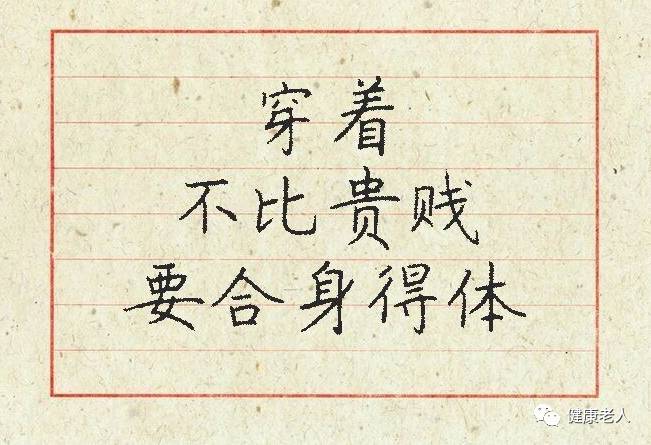 穿着
不比贵贱
要合身得体
健康老人